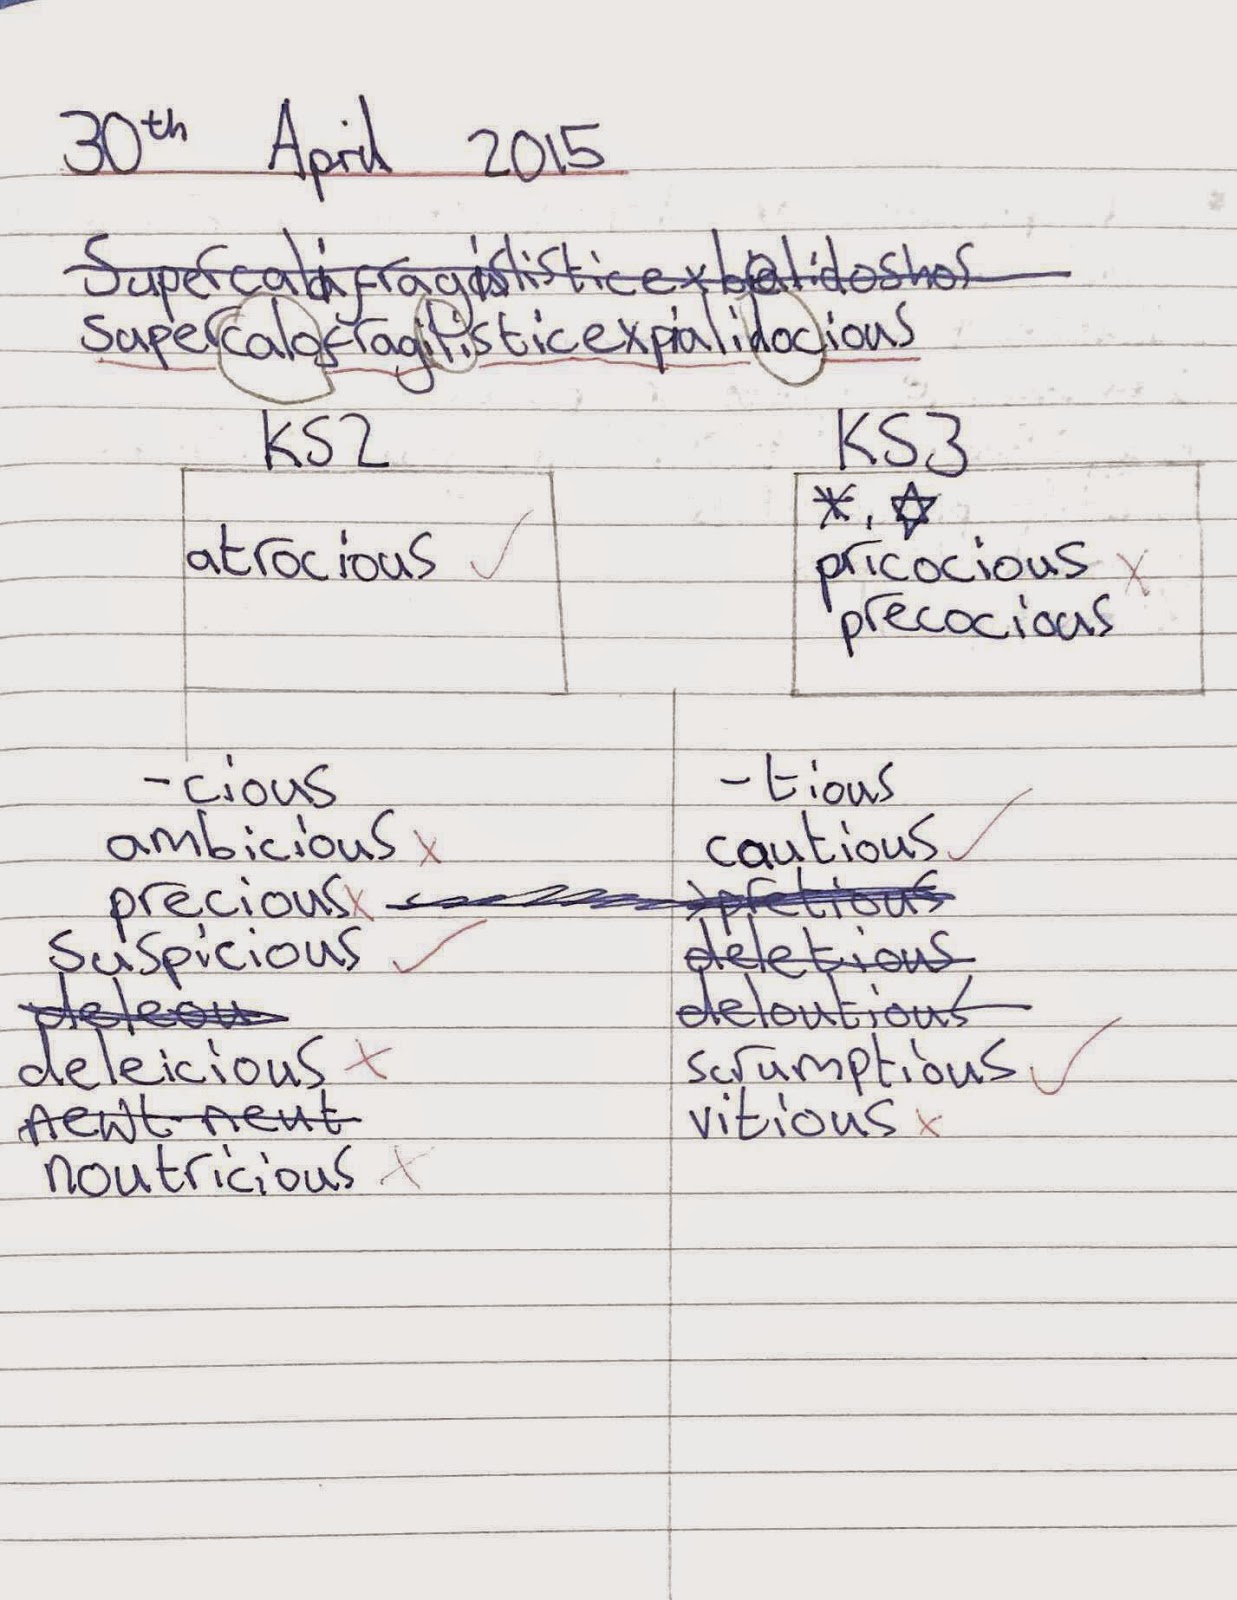 30th April 2015
Supercalifragislisticexbalidoshos
supercalofragilisticexpialidocious
KS2 KS3
*, ✡
atrocious ✓ pricocious x
precocious
-cious -tious
ambicious x cautious ✓
precious x pretious
suspicious ✓ deletious
deleou deloutious
deleicious x scrumptious ✓
newt neut vitious x
noutricious x